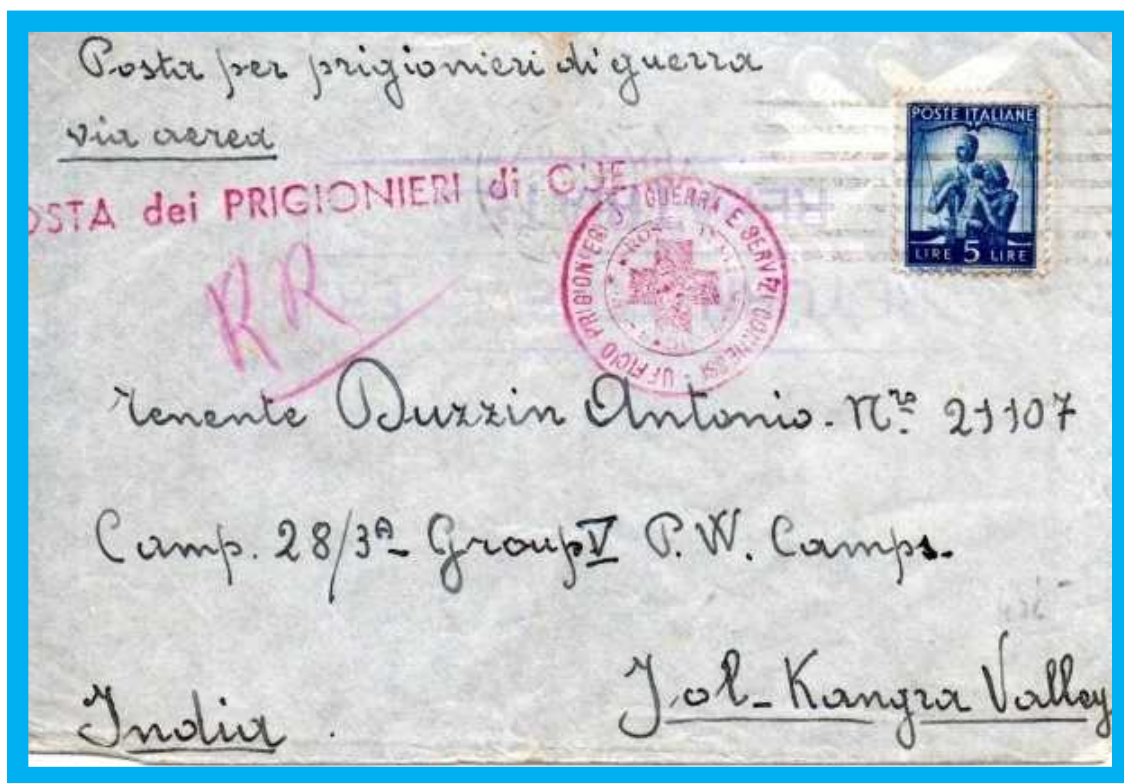 Posta per prigionieri di guerra
via aerea
POSTE ITALIANE
OSTA dei PRIGIONIERI di GUE
UFFICIO PRIGIONIERI DI GUERRA E SERVIZI CONNESSI
LIRE 5 LIRE
RR
Tenente Buzzin Antonio - Nro 21107
Camp. 28/3A - Group V P. W. Camps -
Jol - Kangra Valley
India .